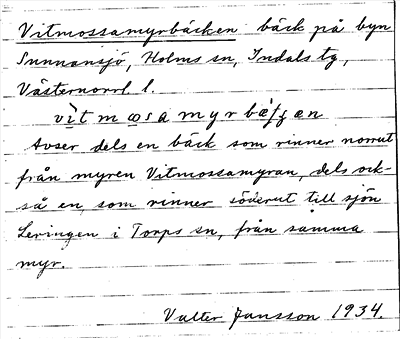 Vitmossamyrbäcken bäck på byn
Sunnansjö, Holms sn, Indals tg,
Västernorrl l.
Avser dels en bäck som rinner norrut
från myren Vitmossamyran, dels ock-
så en, som rinner söderut till sjön
Leringen i Torps sn, från samma
myr.
Valter Jansson 1934.